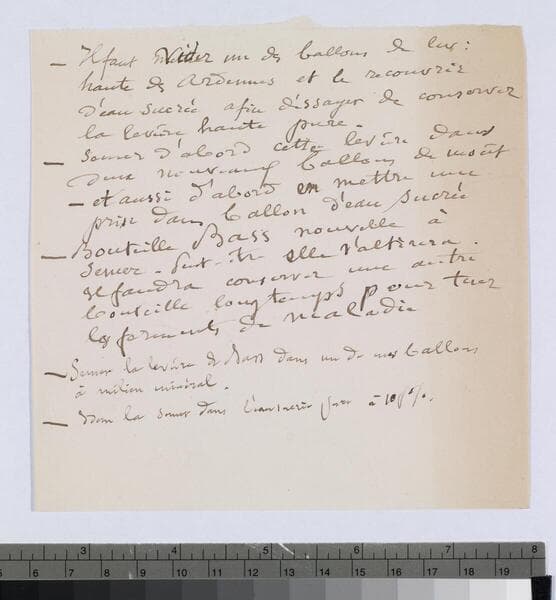 — Il faut vider un des ballons de lev:
haute des Ardennes et le recouvrir
d'eau sucrée afin d'essayer de conserver
la levûre haute pure.
— Semer d'abord cette levûre dans
deux nouveaux ballons de moût
— et aussi d'abord en mettre une
prise dans ballon d'eau sucrée
— Bouteille Bass nouvelle à
semer. Peut-être elle s'altérera.
Il faudra conserver une autre
bouteille longtemps pour tuer
les ferments de maladie
— Semer la levûre de Bass dans un de mes ballons
à milieu minéral.
— Idem la semer dans l'eau sucrée pure à 10 p%.
3 4 5 6 7 8
5 6 7 8 9 10 11 12 13 14 15 16 17 18 19